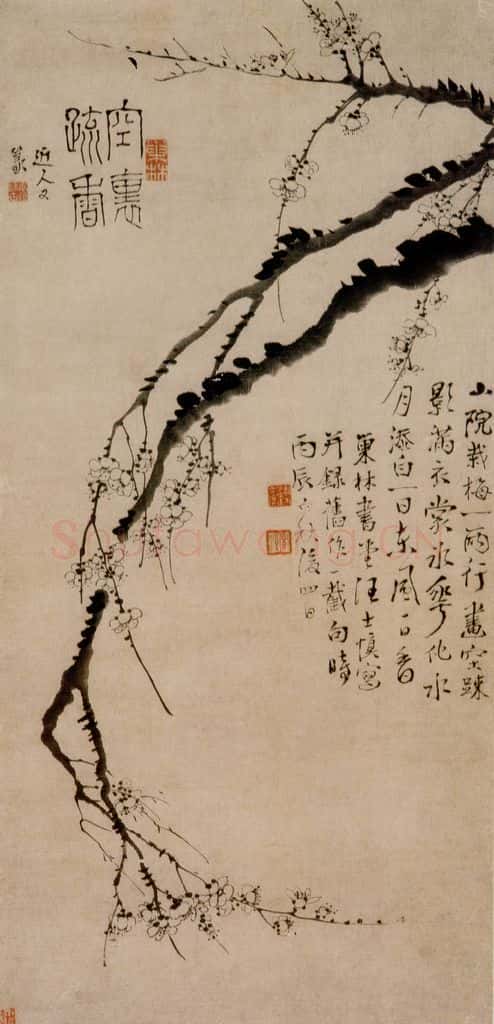 空裏
疏香
近人又
篆
小院栽梅一兩行畫空踈
影滿衣裳冰華化水
月添白一日東風一日香
巢林書堂汪士慎寫
并録舊作一截句時
丙辰 後四日
Shufawang.CN